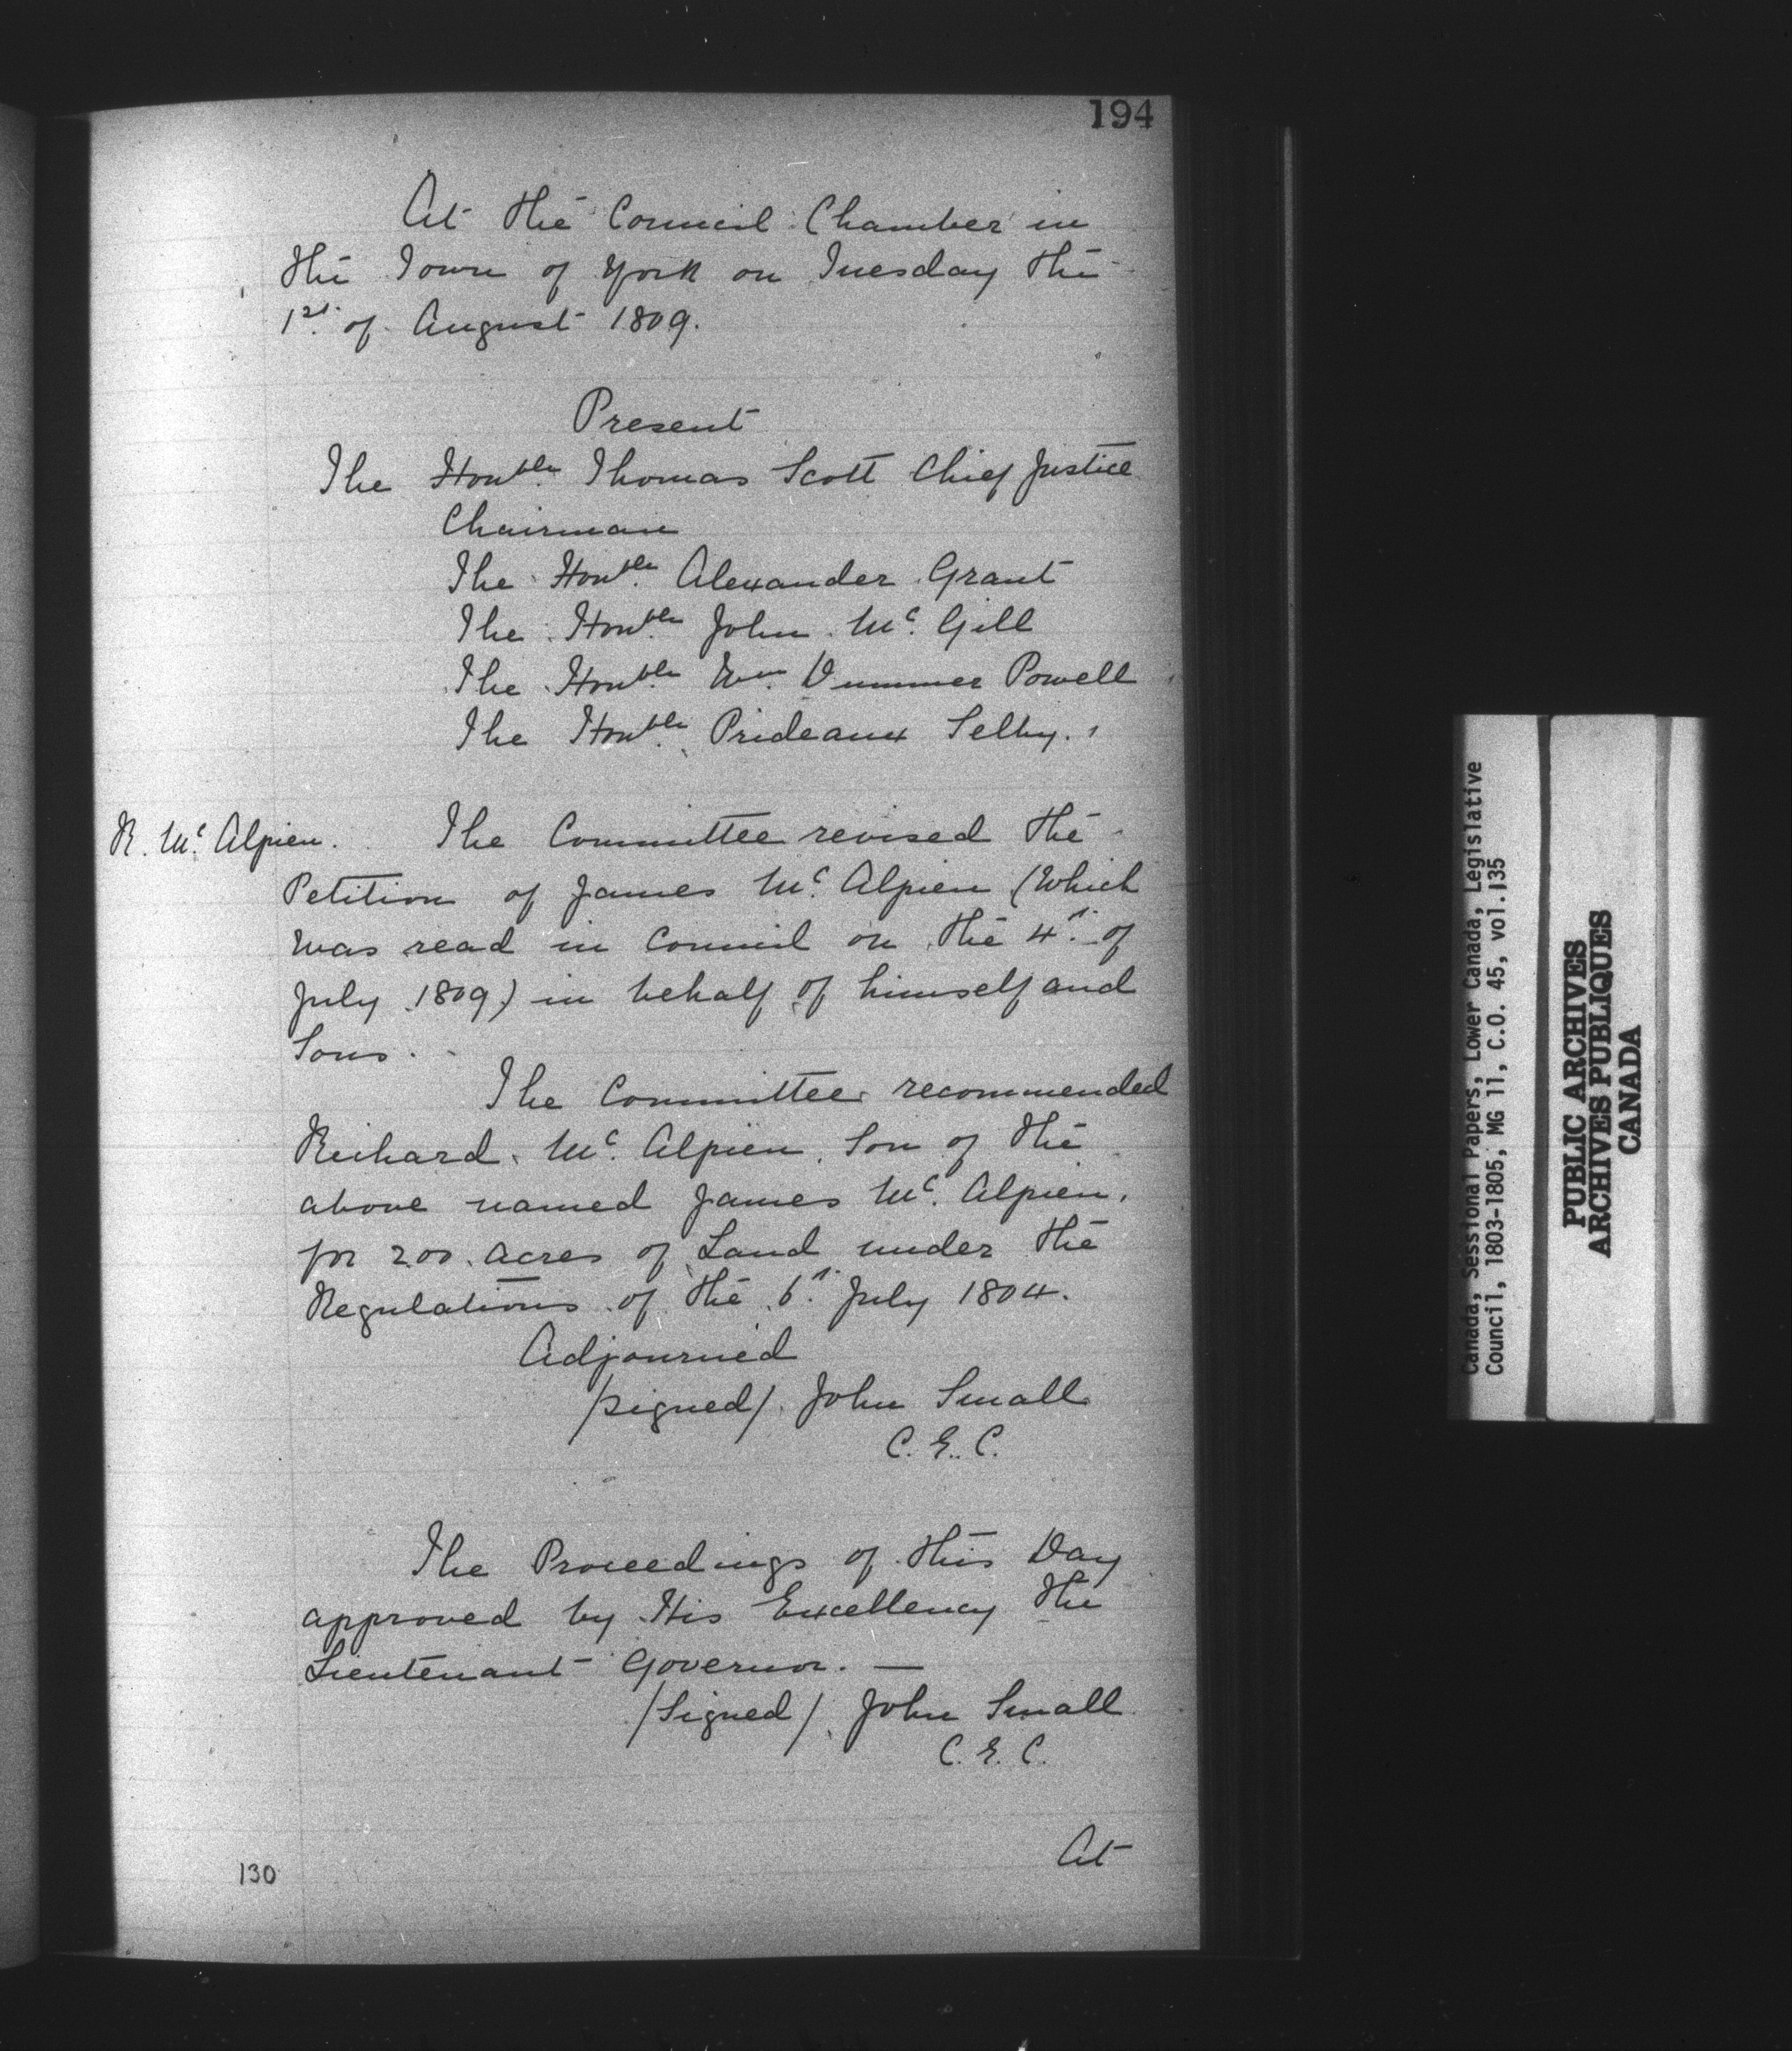 194
At the Council Chamber in
the Town of York on Tuesday the
1st. of August 1809.
Present
The Honble. Thomas Scott Chief Justice
Chairman
The Honble. Alexander Grant
The Honble. John Mc. Gill
The Honble. Wm. Dummer Powell
The Honble. Prideaux Selby.
R. Mc. Alpien. The Committee revised the
Petition of James Mc. Alpien (Which
was read in Council on the 4th. of
July 1809) in behalf of himself and
Sons.
The Committee recommended
Richard Mc. Alpien Son of the
above named James Mc. Alpien.
for 200 acres of Land under the
Regulations of the 6th. July 1804.
Adjourned
/signed/ John Small
C. E. C.
The Proceedings of this Day
approved by His Excellency the
Lieutenant Governor. —
/Signed/ John Small
C. E. C.
At
130
Canada, Sessional Papers, Lower Canada, Legislative
Council, 1803-1805, MG 11, C.O. 45, vol.135
PUBLIC ARCHIVES
ARCHIVES PUBLIQUES
CANADA